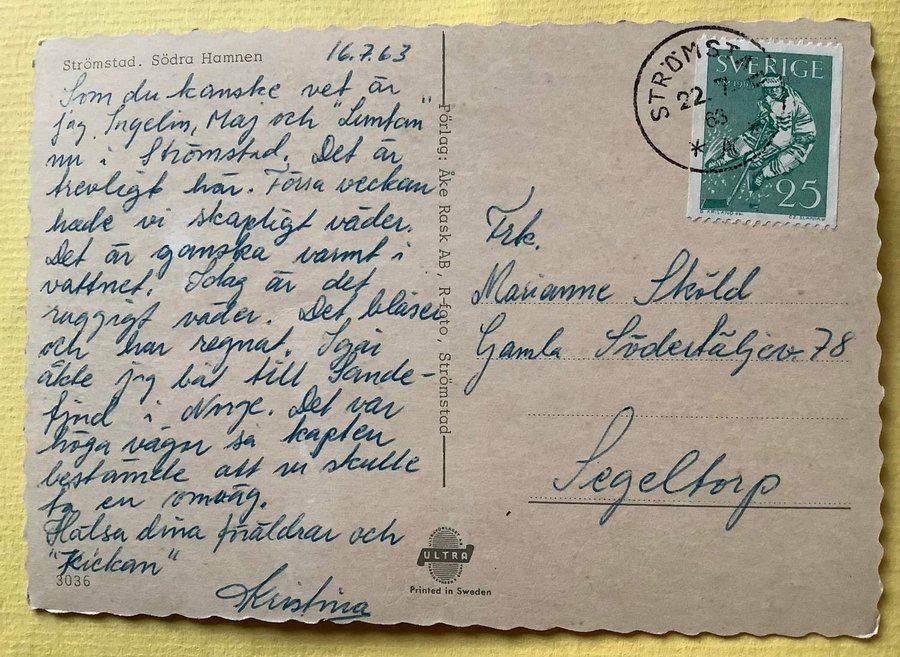 Strömstad. Södra Hamnen
16.7.63
Som du kanske vet är
jag, Ingelin, Maj och "Lintan"
nu i Strömstad. Det är
trevligt här. Förra veckan
hade vi skapligt väder.
Det är ganska varmt i
vattnet. Idag är det
ruggigt väder. Det blåser
och har regnat. Igår
åkte jag båt till Sande-
fjord i Norge. Det var
höga vågor så kapten
bestämde att vi skulle
ta en omväg.
Hälsa dina föräldrar och
"Kickan"
Kristina
3036
Förlag: Åke Rask AB, R-foto, Strömstad
ULTRA
Printed in Sweden
STRÖMSTAD
22.7.
63
* A *
SVERIGE
25
Frk.
Marianne Sköld
Gamla Södertäljev. 78
Segeltorp